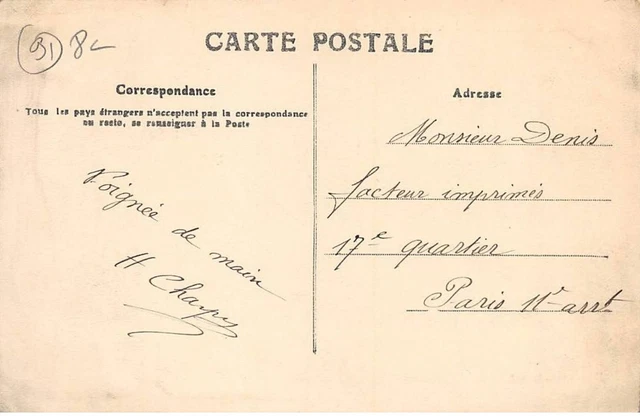 91 8
CARTE POSTALE
Correspondance
Tous les pays étrangers n'acceptent pas la correspondance
au recto, se renseigner à la Poste
Poignée de main
H
Adresse
Monsieur Denis
facteur imprimés
17e quartier
Paris 11e arrt